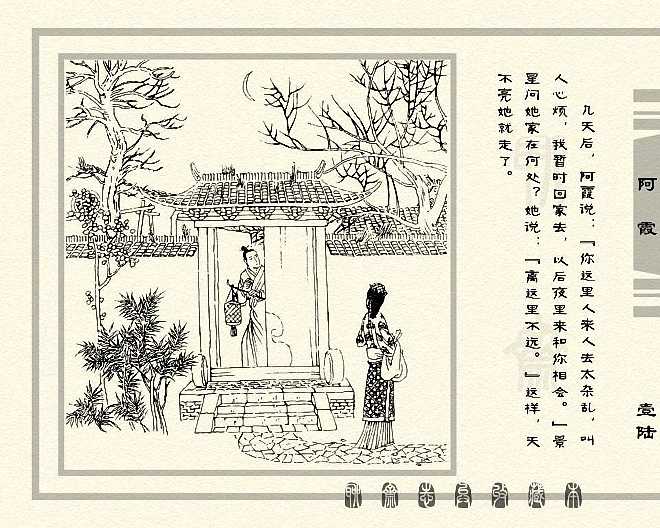 几天后，阿霞说：“你这里人来人去太杂乱，叫
人心烦，我暂时回家去，以后夜里来和你相会。”景
星问她家在何处？她说：“离这里不远。”这样，天
不亮她就走了。
阿霞
壹陆
聊斋志异收藏本